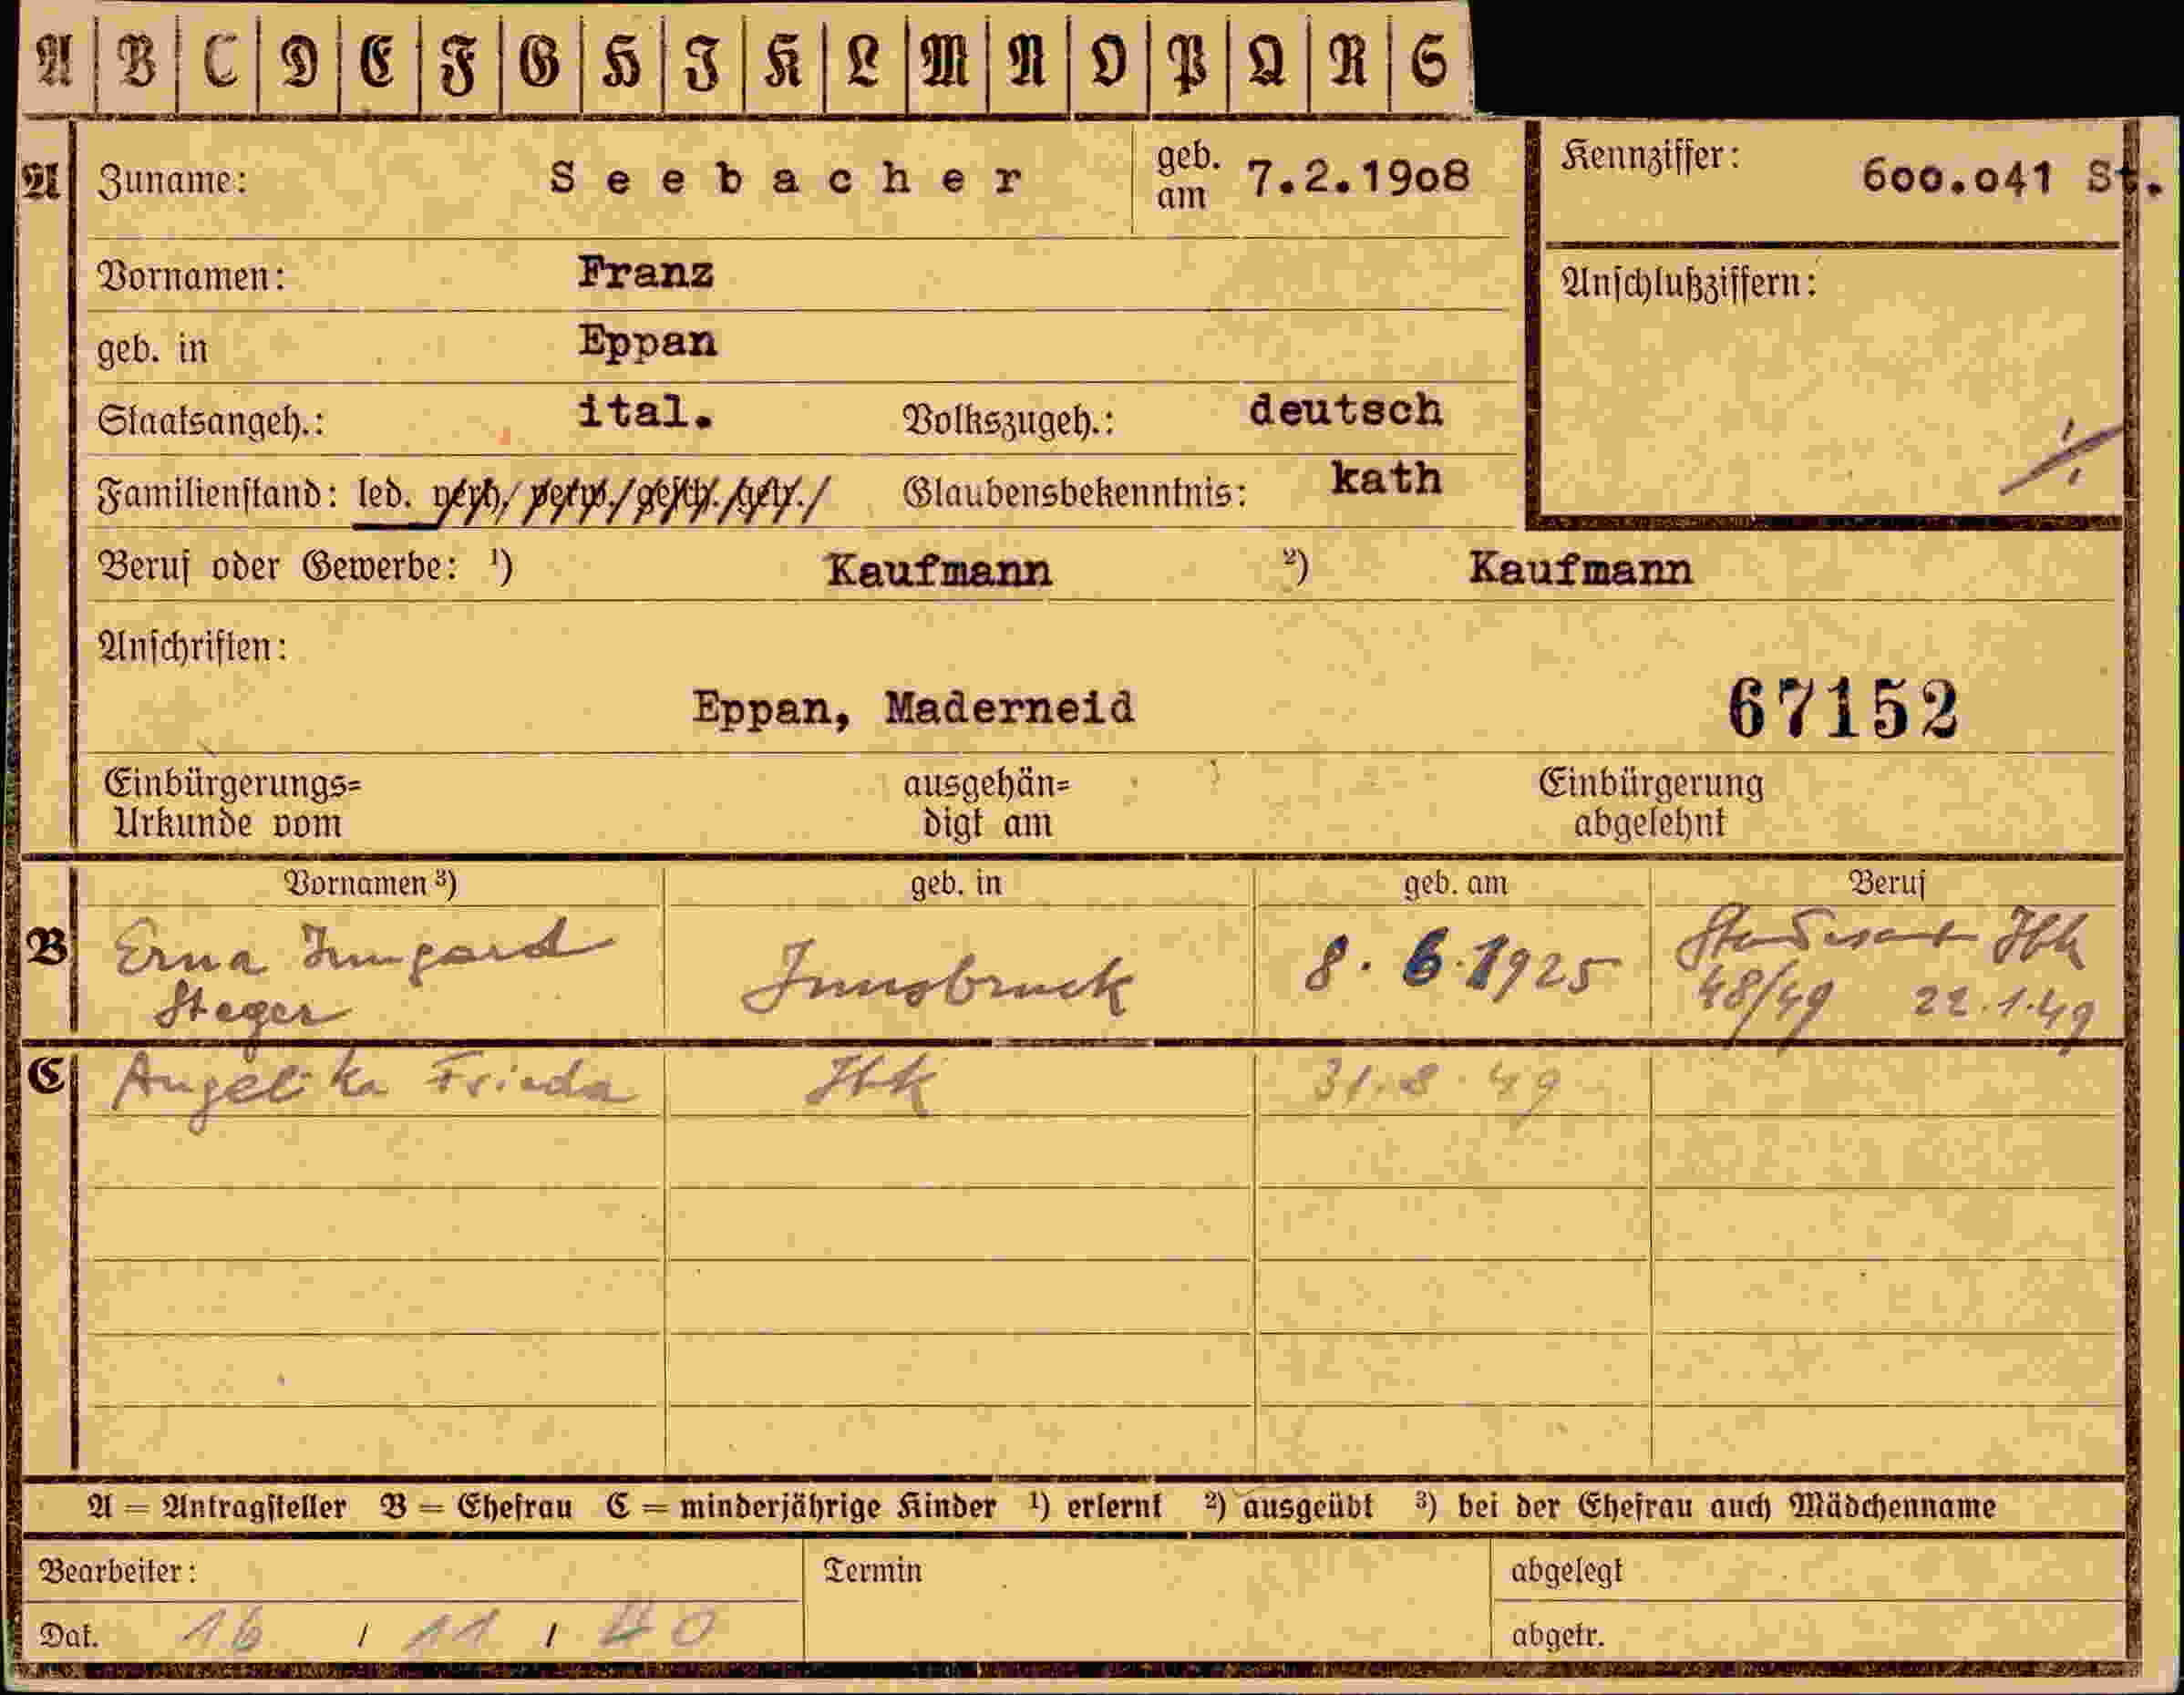 A B C D E F G H I K L M N O P Q R S
A Zuname: Seebacher geb. am 7.2.1908 Kennziffer: 600.041 St.
Vornamen: Franz Anschlußziffern:
geb. in Eppan
Staatsangeh.: ital. Volkszugeh.: deutsch
Familienstand: led. verh./ verw./ gesch./ getr./ Glaubensbekenntnis: kath
Beruf oder Gewerbe: 1) Kaufmann 2) Kaufmann
Anschriften:
Eppan, Maderneid 67152
Einbürgerungs= ausgehän= Einbürgerung
Urkunde vom digt am abgelehnt
Vornamen 3) geb. in geb. am Beruf
B Erna Irmgard Innsbruck 8.6.1925 Standesamt Ibk
Steger 48/49 22.1.49
C Angelika Frieda Ibk 31.8.49
A = Antragsteller B = Ehefrau C = minderjährige Kinder 1) erlernt 2) ausgeübt 3) bei der Ehefrau auch Mädchenname
Bearbeiter: Termin abgelegt
Dat. 16 / 11 / 40 abgetr.